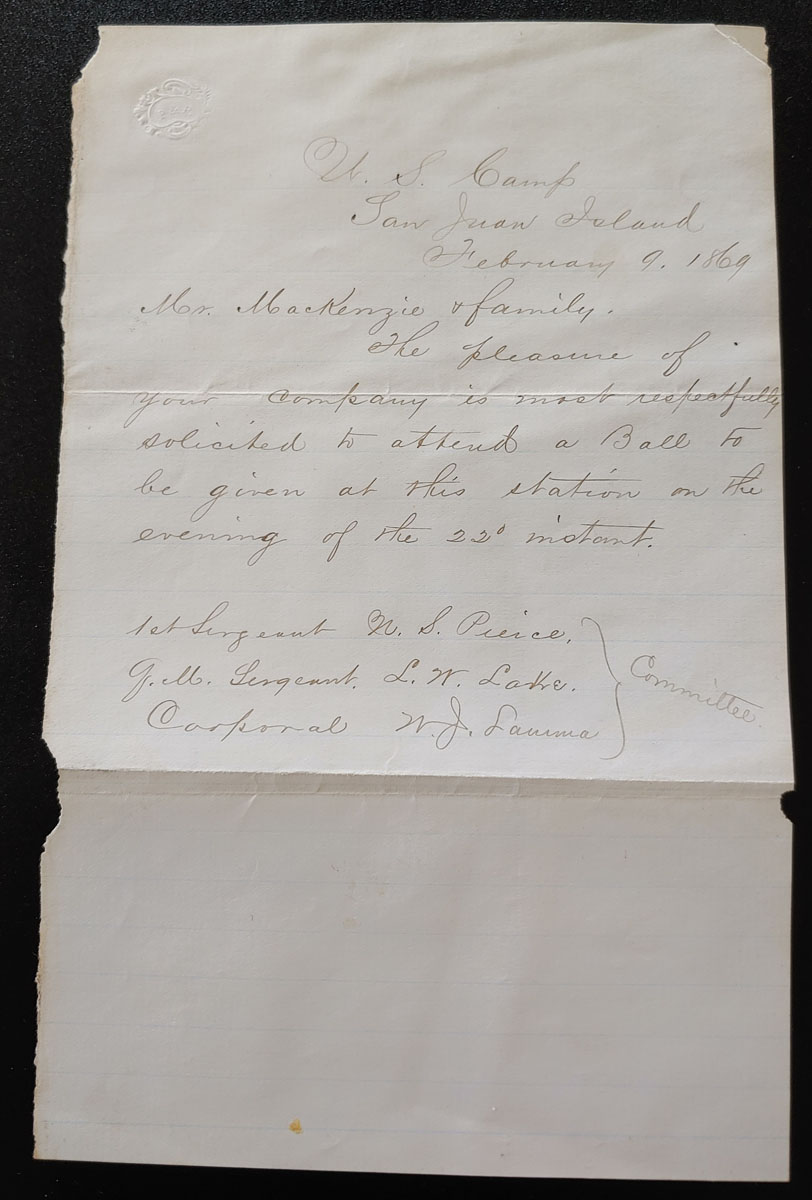 U. S. Camp
San Juan Island
February 9. 1869
Mr. MacKenzie & family.
The pleasure of
your company is most respectfully
solicited to attend a Ball to
be given at this station on the
evening of the 22d instant.
1st Sergeant N. S. Pierce.
Q. M. Sergeant. L. W. Lake.
Corporal W. J.
Committee.